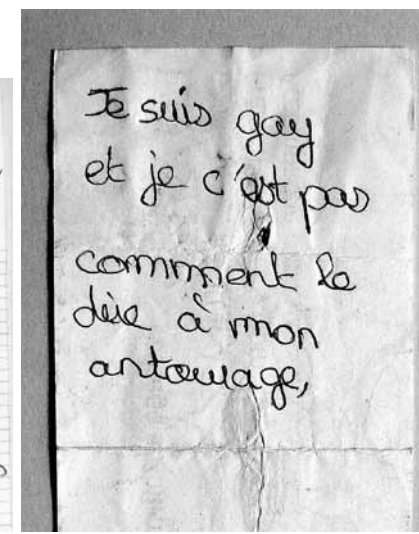 Je suis gay
et je c'est pas
comment le
dire à mon
antourage,